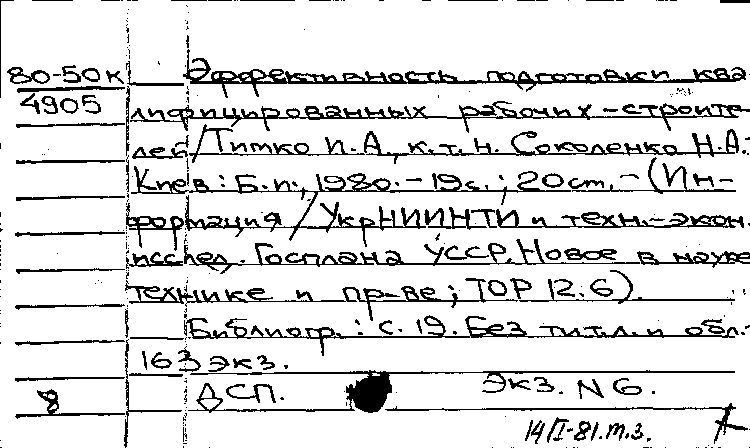 80-50к Эффективность подготовки ква-
4905 лифицированных рабочих-строите-
лей/Титко И.А., к.т.н. Соколенко Н.А.-
Киев: Б.и., 1980.-19с.; 20 ст.-(Ин-
формация/УкрНИИНТИ и техн.-экон.
исслед. Госплана УССР. Новое в науке
технике и пр-ве; ТОР 12.6).
Библиогр.: с. 19. Без тит.л. и обл.-
163 экз.
8 ДСП. Экз. N 6.
14/I-81.т.з.